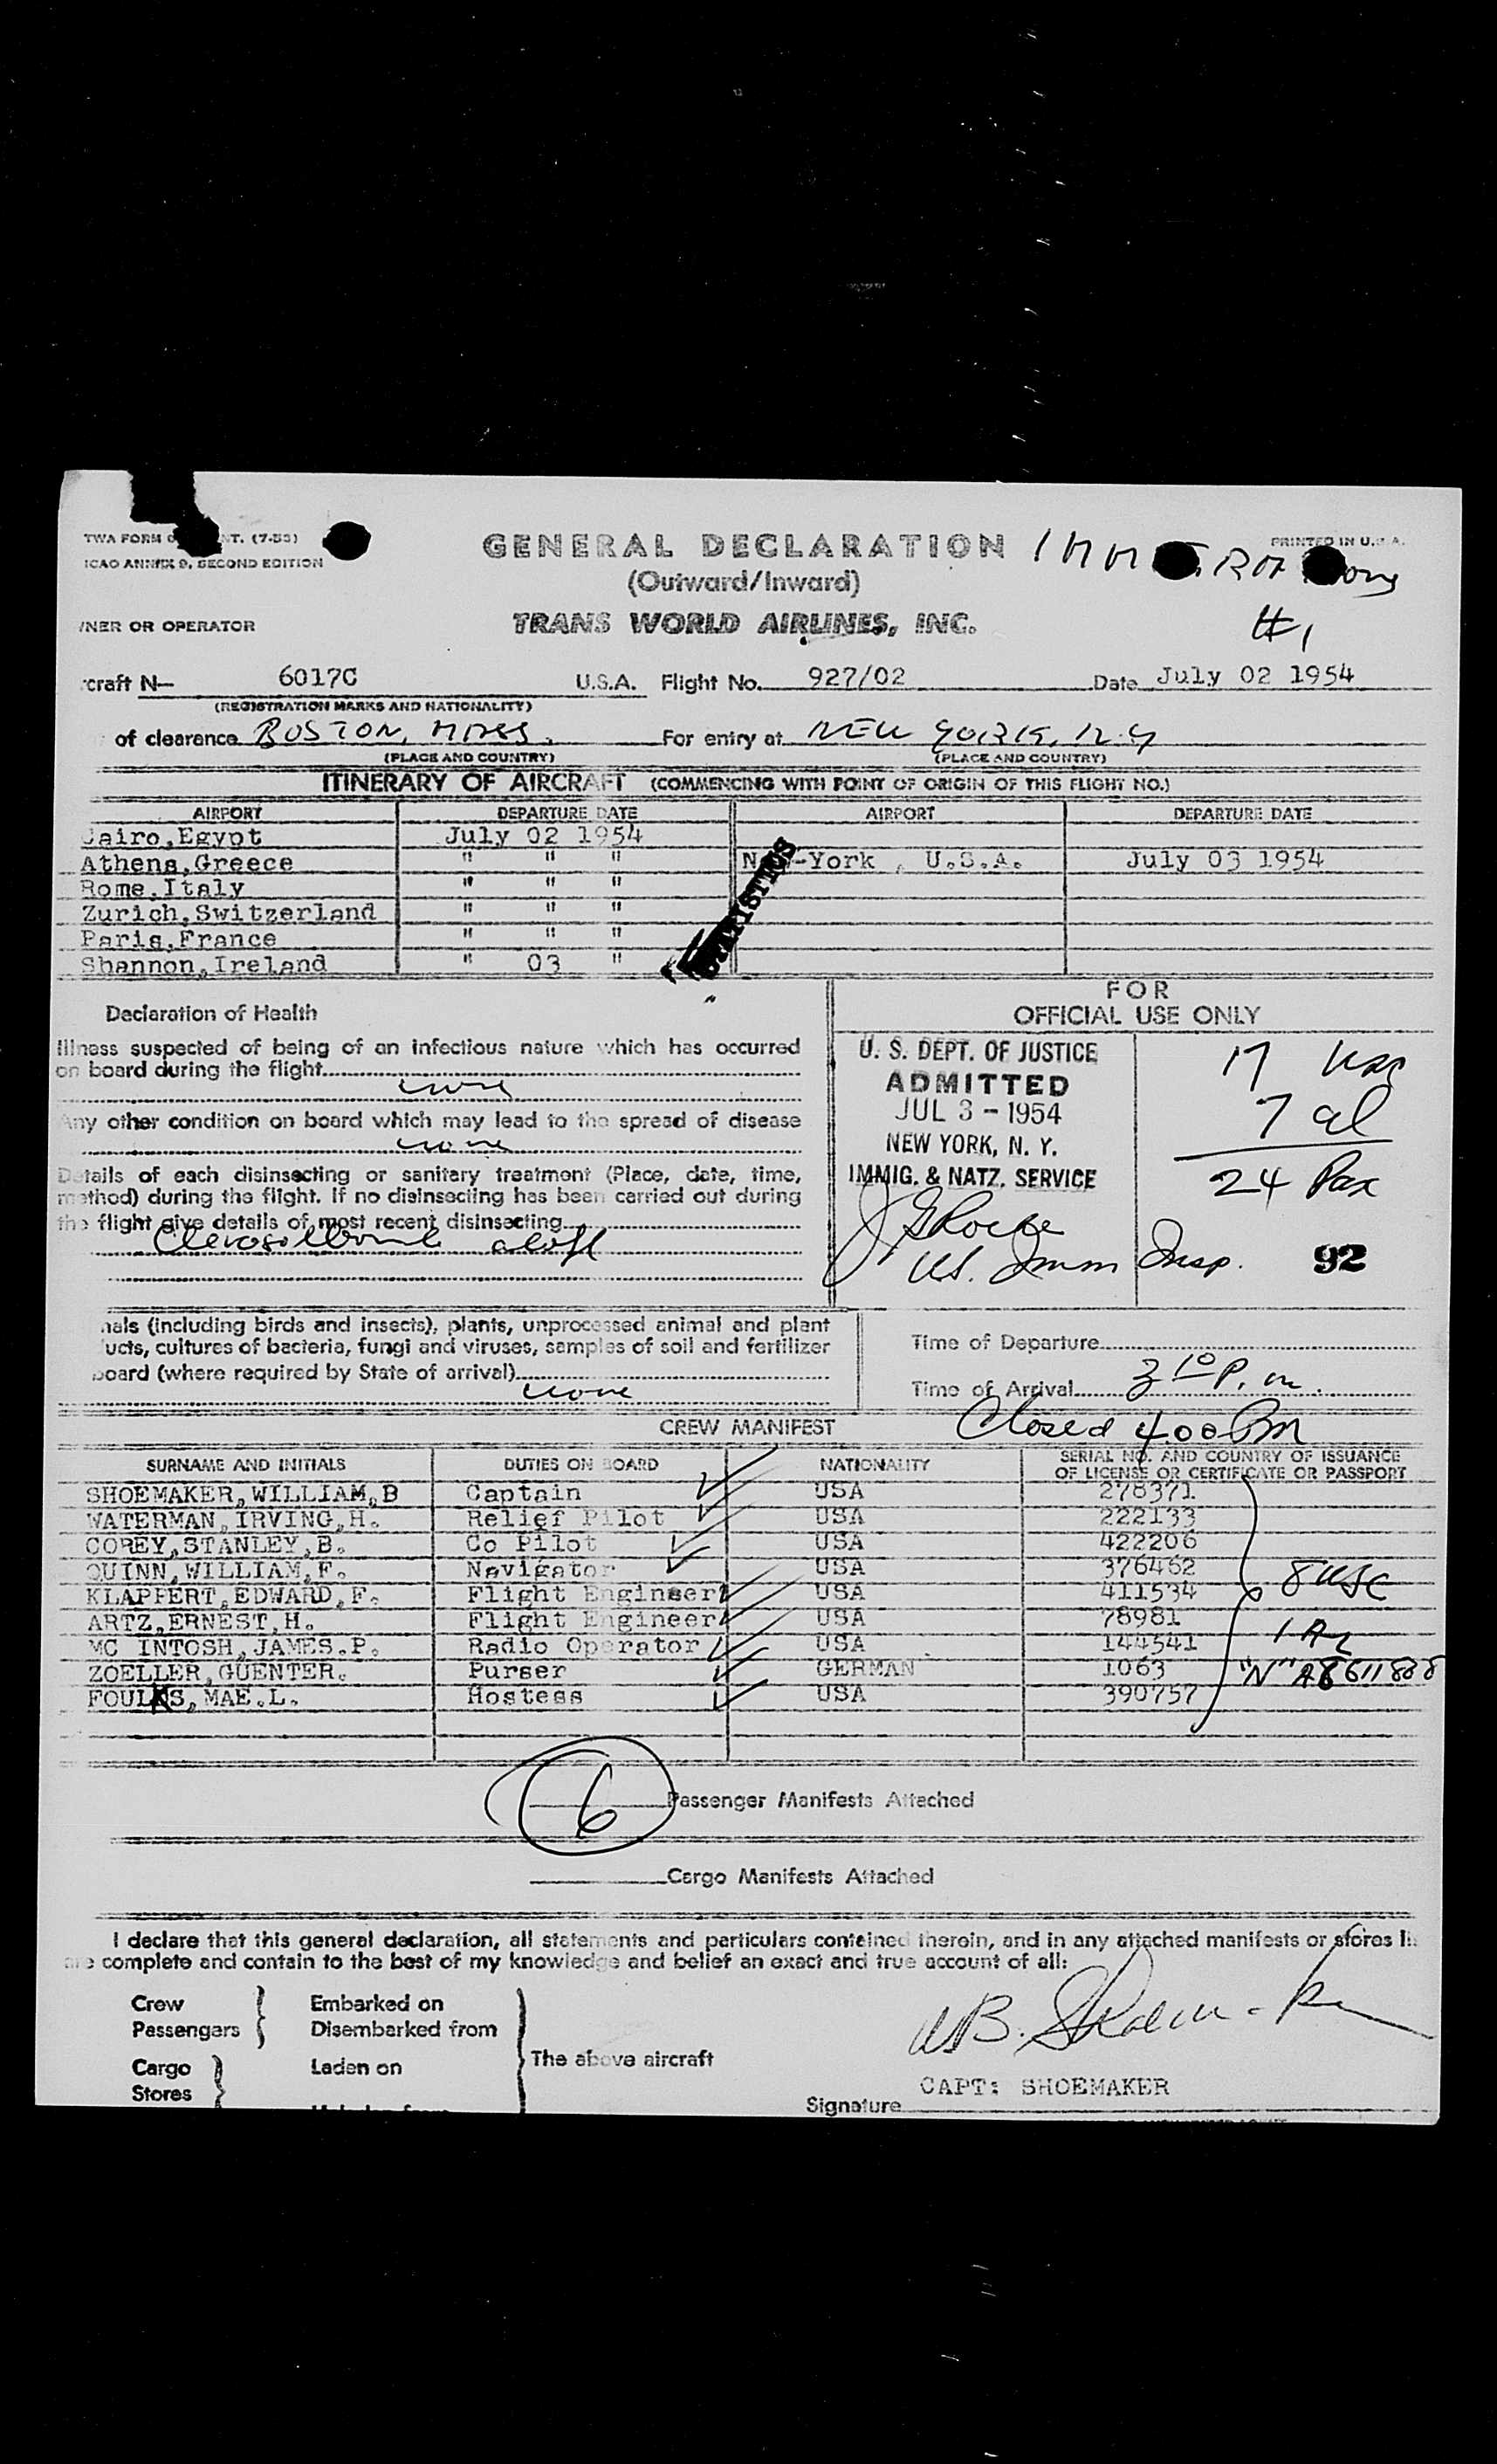 TWA FORM NT. (7-53)
PRINTED IN U.S.A.
ICAO ANNEX 9, SECOND EDITION
GENERAL DECLARATION
(Outward/Inward)
#1
/NER OR OPERATOR
TRANS WORLD AIRLINES, INC.
craft N— 6017C U.S.A. Flight No. 927/02 Date July 02 1954
(REGISTRATION MARKS AND NATIONALITY)
of clearance BOSTON, MASS. For entry at NEW YORK, N.Y
(PLACE AND COUNTRY) (PLACE AND COUNTRY)
ITINERARY OF AIRCRAFT (COMMENCING WITH POINT OF ORIGIN OF THIS FLIGHT NO.)
AIRPORT DEPARTURE DATE AIRPORT DEPARTURE DATE
Cairo,Egypt July 02 1954
Athens,Greece " " " New-York , U.S.A. July 03 1954
Rome,Italy " " "
Zurich,Switzerland " " "
Paris,France " " "
Shannon,Ireland " 03 "
STATISTICS
Declaration of Health
Illness suspected of being of an infectious nature which has occurred
on board during the flight
none
Any other condition on board which may lead to the spread of disease
none
Details of each disinsecting or sanitary treatment (Place, date, time,
method) during the flight. If no disinsecting has been carried out during
the flight give details of most recent disinsecting
aloft
FOR
OFFICIAL USE ONLY
U. S. DEPT. OF JUSTICE
ADMITTED
JUL 3 - 1954
NEW YORK, N. Y.
IMMIG. & NATZ. SERVICE
US. Imm Insp.
17 usc
7 al
24 Pax
92
nals (including birds and insects), plants, unprocessed animal and plant
ucts, cultures of bacteria, fungi and viruses, samples of soil and fertilizer
board (where required by State of arrival)
none
Time of Departure
Time of Arrival 3 10 P. m.
Closed 4.00 PM
CREW MANIFEST
SURNAME AND INITIALS DUTIES ON BOARD NATIONALITY SERIAL NO. AND COUNTRY OF ISSUANCE
OF LICENSE OR CERTIFICATE OR PASSPORT
SHOEMAKER,WILLIAM,B Captain USA 278371
WATERMAN,IRVING,H. Relief Pilot USA 222133
COREY,STANLEY,B. Co Pilot USA 422206
QUINN,WILLIAM,F. Navigator USA 376462
KLAPPERT,EDWARD,F. Flight Engineer USA 411534 8 USC
ARTZ,ERNEST,H. Flight Engineer USA 78981
MC INTOSH,JAMES.P. Radio Operator USA 144541 1 AL
ZOELLER,GUENTER. Purser GERMAN 1063 "N" A8611888
FOULKS,MAE.L. Hostess USA 390757
6 Passenger Manifests Attached
Cargo Manifests Attached
I declare that this general declaration, all statements and particulars contained therein, and in any attached manifests or stores li
are complete and contain to the best of my knowledge and belief an exact and true account of all:
Crew Embarked on
Passengers Disembarked from
The above aircraft
Cargo Laden on
Stores
WB. Shoemaker
CAPT: SHOEMAKER
Signature